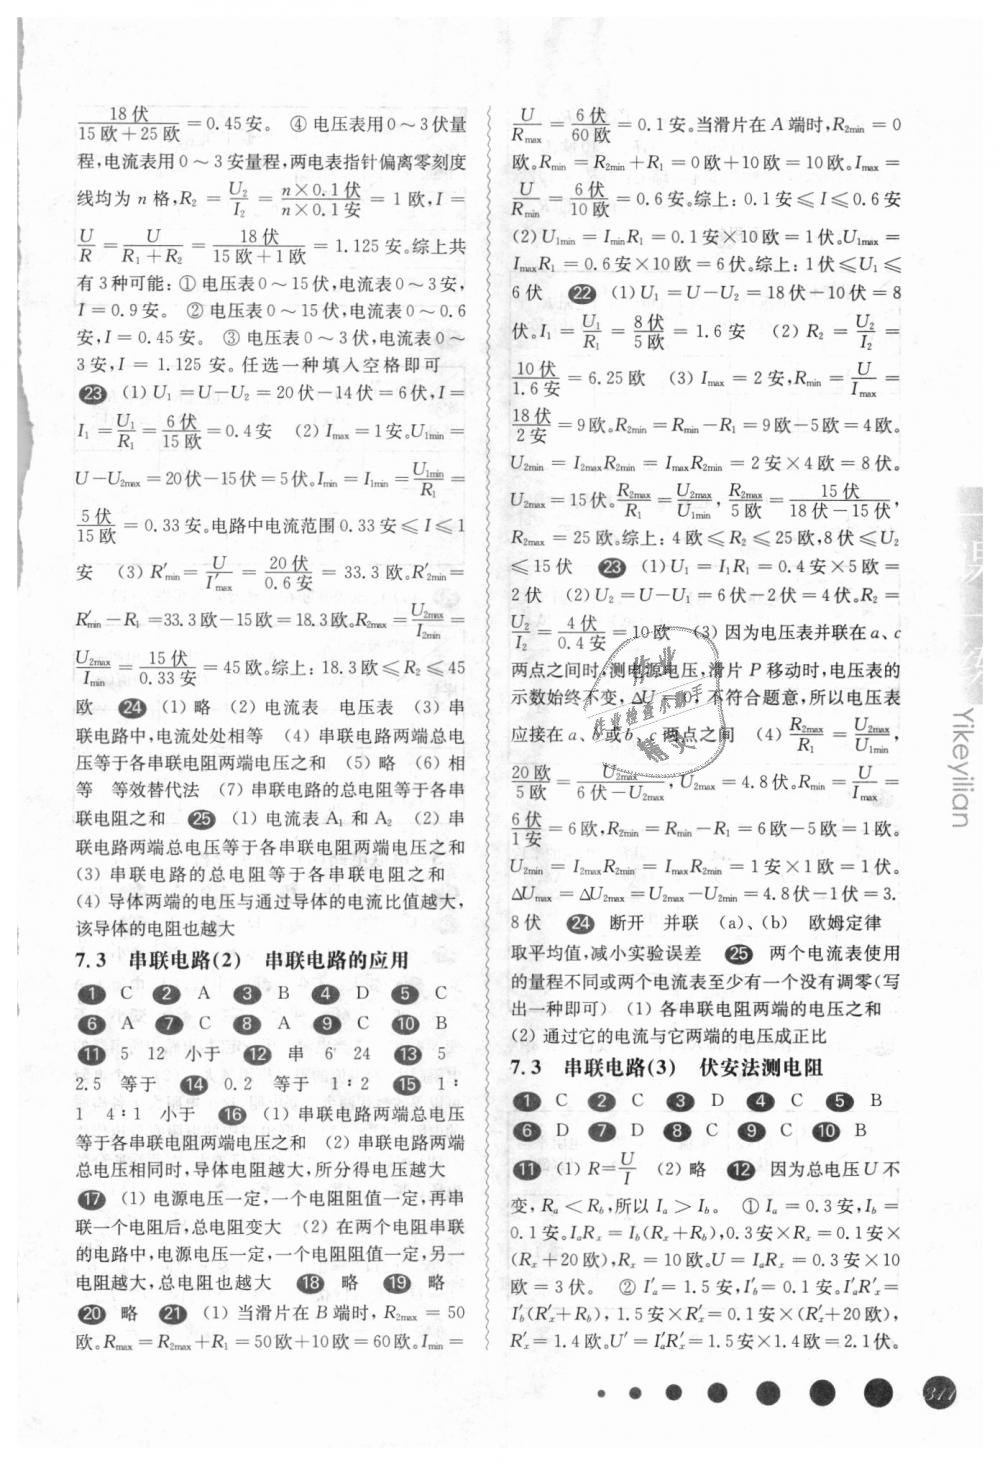 18伏/(15欧+25欧) = 0.45安。 ④ 电压表用0～3伏量
程,电流表用0～3安量程,两电表指针偏离零刻度
线均为 n 格,R₂ = U₂/I₂ = (n×0.1伏)/(n×0.1安) = 1欧,I =
U/R = U/(R₁+R₂) = 18伏/(15欧+1欧) = 1.125安。综上共
有3种可能:① 电压表0～15伏,电流表0～3安,
I=0.9安。 ② 电压表0～15伏,电流表0～0.6
安,I=0.45安。 ③ 电压表0～3伏,电流表0～
3安,I = 1.125安。任选一种填入空格即可
23 (1) U₁=U-U₂=20伏-14伏=6伏,I=
I₁ = U₁/R₁ = 6伏/15欧 = 0.4安 (2) Imax=1安。U1min =
U-U2max=20伏-15伏=5伏。Imin=I1min=U1min/R₁
5伏/15欧 = 0.33安。电路中电流范围0.33安≤I≤1
安 (3) R′min= U/I′max = 20伏/0.6安 = 33.3欧。R′2min=
R′min-R₁=33.3欧-15欧=18.3欧。R2max=U2max/I2min=
U2max/Imin = 15伏/0.33安 = 45欧。综上:18.3欧≤R₂≤45
欧 24 (1) 略 (2) 电流表 电压表 (3) 串
联电路中,电流处处相等 (4) 串联电路两端总电
压等于各串联电阻两端电压之和 (5) 略 (6) 相
等 等效替代法 (7) 串联电路的总电阻等于各串
联电阻之和 25 (1) 电流表 A₁ 和 A₂ (2) 串
联电路两端总电压等于各串联电阻两端电压之和
(3) 串联电路的总电阻等于各串联电阻之和
(4) 导体两端的电压与通过导体的电流比值越大,
该导体的电阻也越大
7.3 串联电路(2) 串联电路的应用
1 C 2 A 3 B 4 D 5 C
6 A 7 C 8 A 9 C 10 B
11 5 12 小于 12 串 6 24 13 5
2.5 等于 14 0.2 等于 1∶2 15 1∶
1 4∶1 小于 16 (1) 串联电路两端总电压
等于各串联电阻两端电压之和 (2) 串联电路两端
总电压相同时,导体电阻越大,所分得电压越大
17 (1) 电源电压一定,一个电阻阻值一定,再串
联一个电阻后,总电阻变大 (2) 在两个电阻串联
的电路中,电源电压一定,一个电阻阻值一定,另一
电阻越大,总电阻也越大 18 略 19 略
20 略 21 (1) 当滑片在 B 端时,R2max=50
欧。Rmax=R2max+R₁=50欧+10欧=60欧。Imin=
U/Rmax = 6伏/60欧 = 0.1安。当滑片在 A 端时,R2min=0
欧。Rmin=R2min+R₁=0欧+10欧=10欧。Imax=
U/Rmin = 6伏/10欧 = 0.6安。综上:0.1安≤I≤0.6安
(2) U1min=IminR₁=0.1安×10欧=1伏。U1max=
ImaxR₁=0.6安×10欧=6伏。综上:1伏≤U₁≤
6伏 22 (1) U₁=U-U₂=18伏-10伏=8
伏。I₁ = U₁/R₁ = 8伏/5欧 = 1.6安 (2) R₂ = U₂/I₂ =
10伏/1.6安 = 6.25欧 (3) Imax=2安,Rmin=U/Imax
18伏/2安 = 9欧。R2min=Rmin-R₁=9欧-5欧=4欧。
U2min = I2maxR2min = ImaxR2min = 2安×4欧=8伏。
U2max=15伏。R2max/R₁ = U2max/U1min, R2max/5欧 = 15伏/(18伏-15伏),
R2max=25欧。综上:4欧≤R₂≤25欧,8伏≤U₂
≤15伏 23 (1) U₁=I₁R₁=0.4安×5欧=
2伏 (2) U₂=U-U₁=6伏-2伏=4伏。R₂=
U₂/I₂ = 4伏/0.4安 = 10欧 (3) 因为电压表并联在 a、c
两点之间时,测电源电压,滑片 P 移动时,电压表的
示数始终不变,ΔU=0,不符合题意,所以电压表
应接在 a、b 或 b、c 两点之间 (4) R2max/R₁ = U2max/U1min,
20欧/5欧 = U2max/(6伏-U2max), U2max=4.8伏。Rmin = U/Imax =
6伏/1安 = 6欧,R2min=Rmin-R₁=6欧-5欧=1欧。
U2min = I2maxR2min = ImaxR2min = 1安×1欧=1伏。
ΔUmax=ΔU2max=U2max-U2min=4.8伏-1伏=3.
8伏 24 断开 并联 (a)、(b) 欧姆定律
取平均值,减小实验误差 25 两个电流表使用
的量程不同或两个电流表至少有一个没有调零(写
出一种即可) (1) 各串联电阻两端的电压之和
(2) 通过它的电流与它两端的电压成正比
7.3 串联电路(3) 伏安法测电阻
1 C 2 C 3 D 4 C 5 B
6 D 7 D 8 C 9 C 10 B
11 (1) R=U/I (2) 略 12 因为总电压 U 不
变,Ra<Rb,所以 Ia>Ib。 ① Ia=0.3安,Ib=
0.1安。IaRx=Ib(Rx+Rb),0.3安×Rx=0.1安×
(Rx+20欧),Rx=10欧。U=IaRx=0.3安×10
欧=3伏。 ② I′a=1.5安,I′b=0.1安。I′aR′x=
I′b(R′x+Rb),1.5安×R′x=0.1安×(R′x+20欧),
R′x=1.4欧。U′=I′aR′x=1.5安×1.4欧=2.1伏。
一课一练
Yikeyilian
作业
作业检查小助手
精灵
377